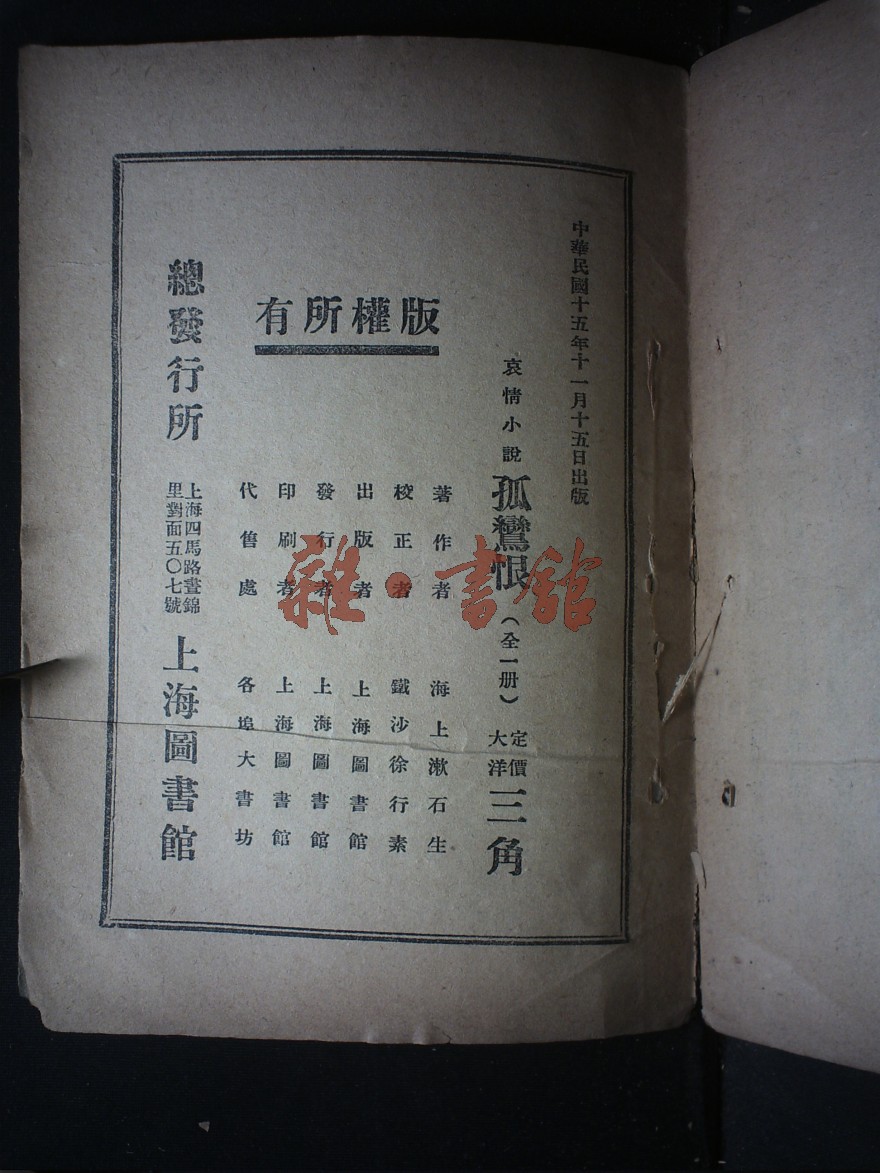 中華民國十五年十一月十五日出版
哀情小說 孤鸞恨 （全一册） 定價大洋 三角
版權所有
著作者 海上漱石生
校正者 鐵沙徐行素
出版者 上海圖書館
發行者 上海圖書館
印刷者 上海圖書館
代售處 各埠大書坊
總發行所 上海四馬路晝錦里對面五〇七號 上海圖書館
雜·書館